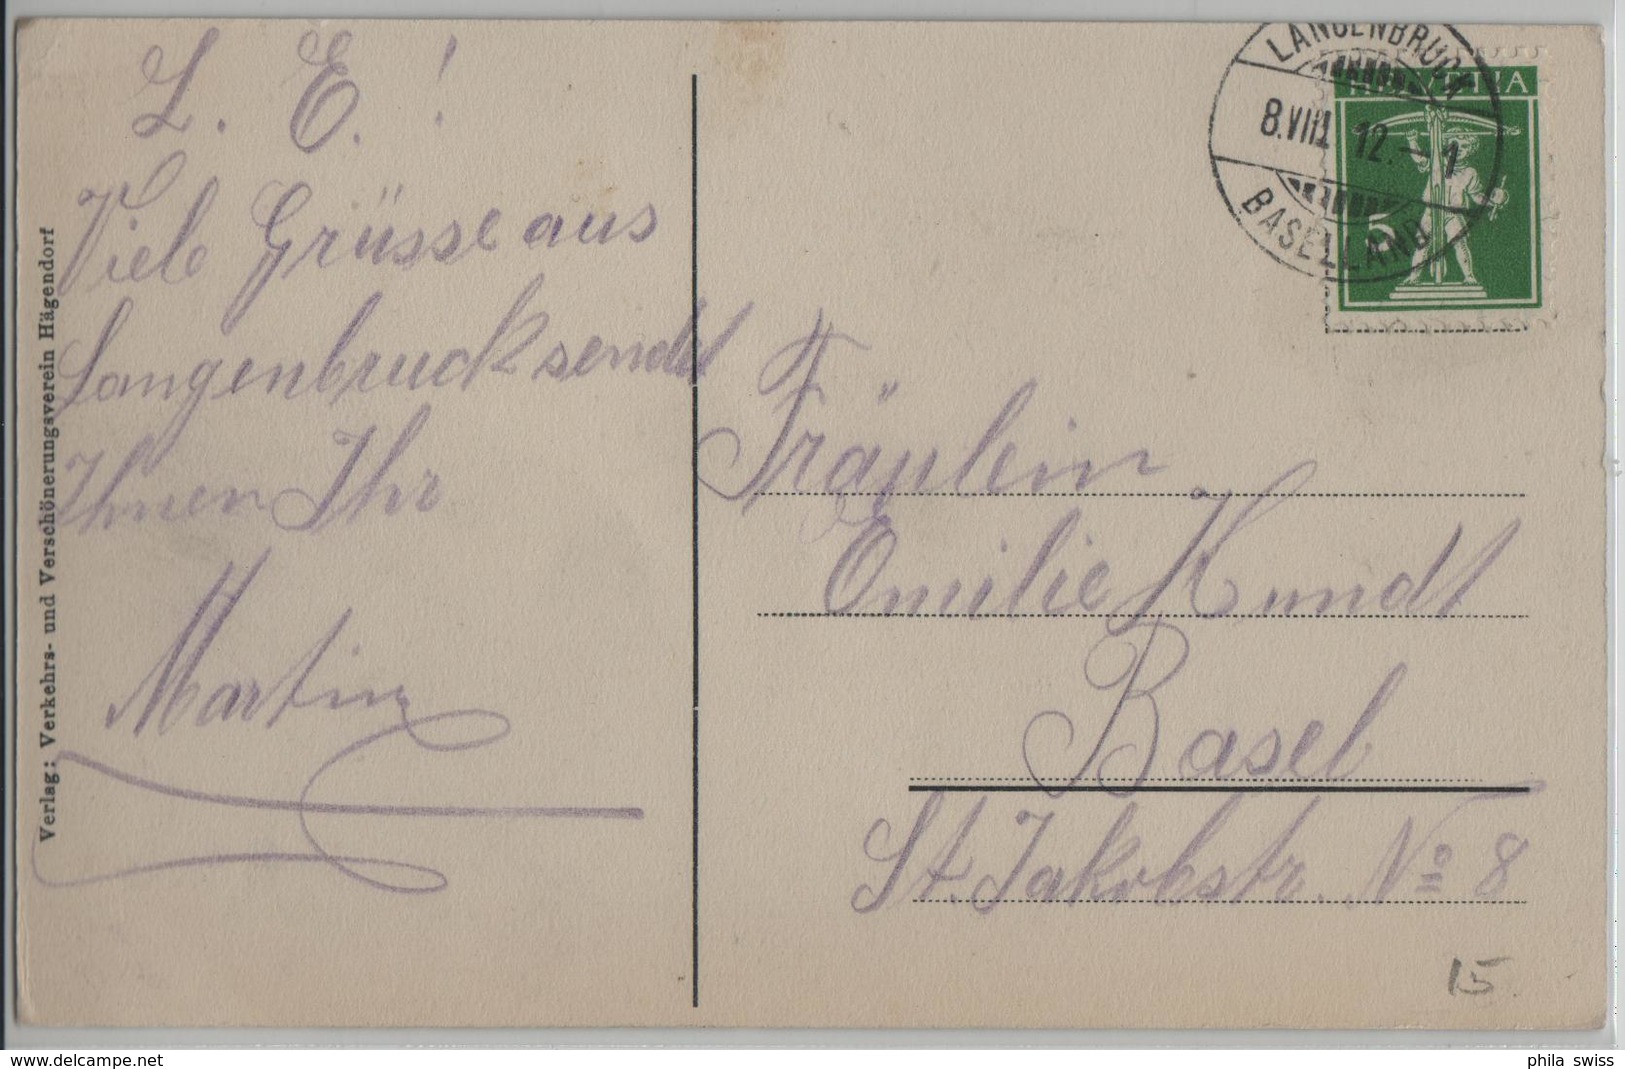 L. E. !
Viele Grüsse aus
Langenbruck sendet
Ihnen Ihr
Martin
Verlag: Verkehrs- und Verschönerungsverein Hägendorf
LANGENBRUCK
8.VIII.12.–1
BASELLAND
HELVETIA
5
Fräulein
Emilie Kundt
Basel
St. Jakobstr. No 8
15.
delcampe.net
phila_swiss